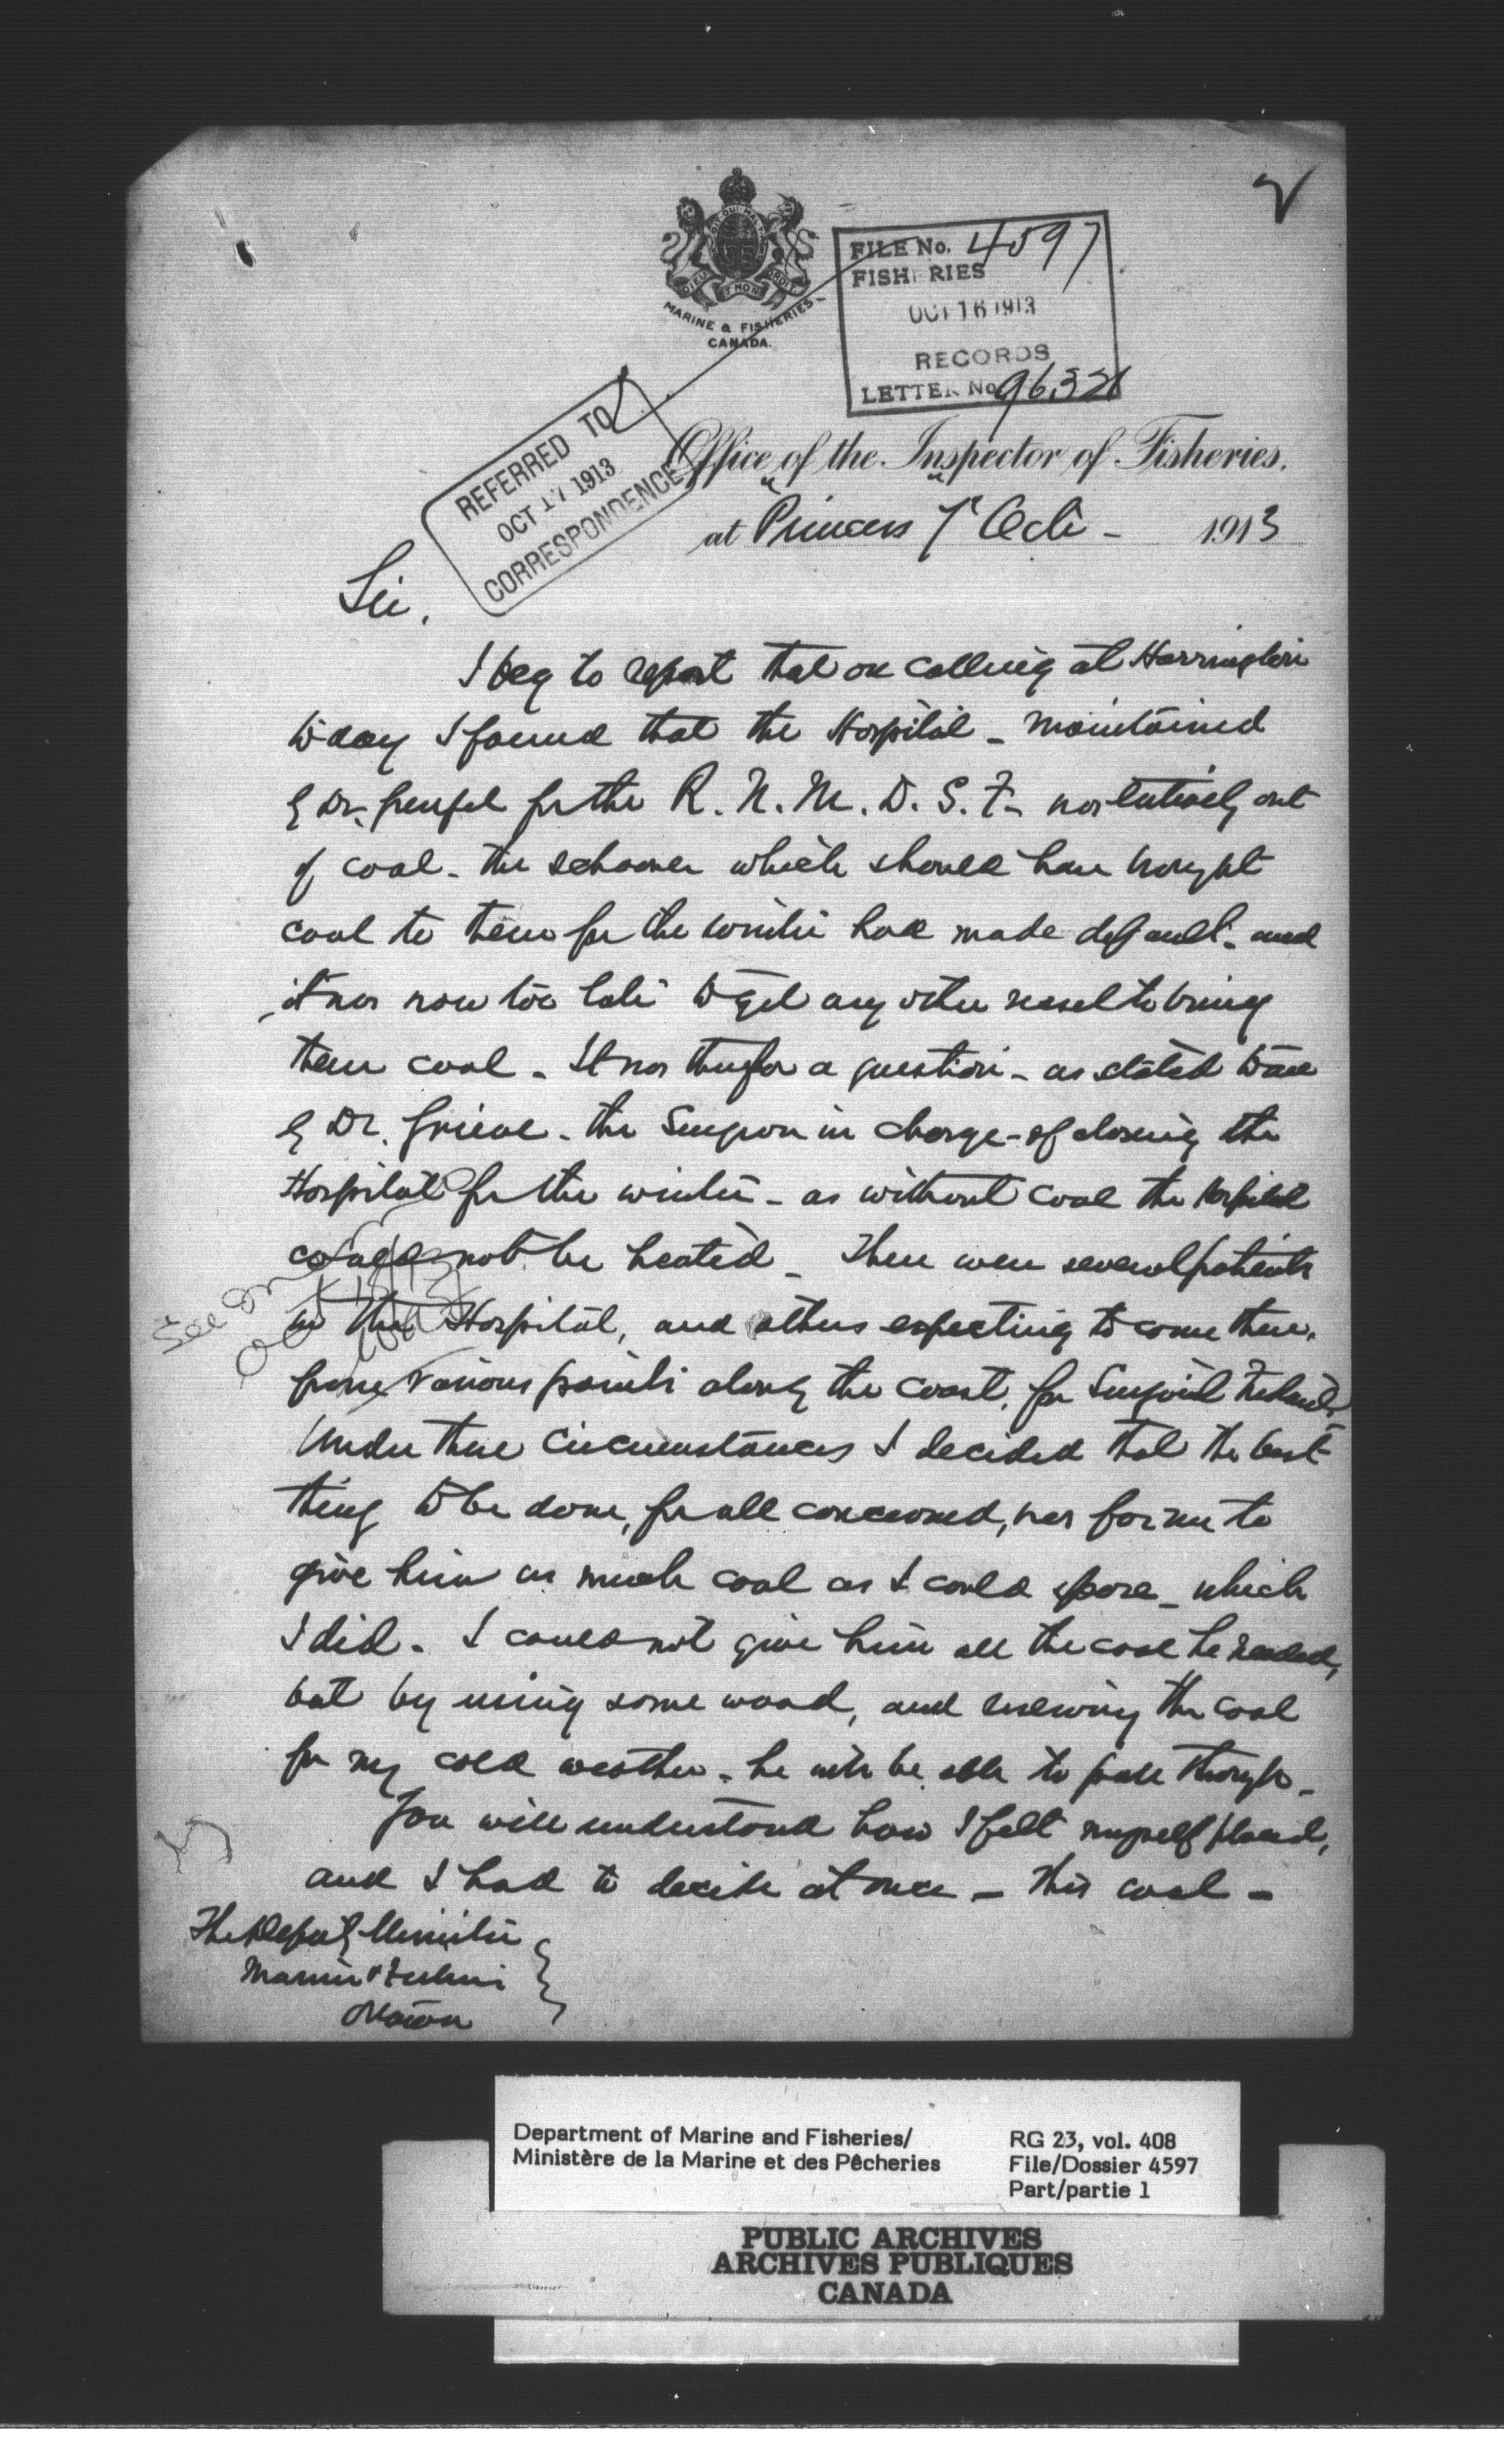 DIEU ET MON DROIT
MARINE & FISHERIES
CANADA.
FILE No. 4597
FISHERIES
OCT 16 1913
RECORDS
LETTER No 96,321
REFERRED TO
OCT 17 1913
CORRESPONDENCE
Office of the Inspector of Fisheries.
at "Princess" 7th Octr - 1913
Sir,
I beg to report that on calling at Harrington
to day I found that the Hospital - maintained
by Dr. Grenfel for the R. N. M. D. S. F. - was entirely out
of coal. The schooner which should have brought
coal to them for the winter had made default - and
it was now too late to get any other vessel to bring
them coal - It was therefor a question - as stated to me
by Dr. Grieve - the Surgeon in charge - of closing the
Hospital for the winter - as without coal the Hospital
could not be heated - There were several patients
in the Hospital, and others expecting to come there,
from various points along the coast, for Surgical treatmt.
Under these circumstances I decided that the best
thing to be done, for all concerned, was for me to
give him as much coal as I could spare - which
I did - I could not give him all the coal he needed,
but by using some wood, and the coal
for cold weather - he will be able to pull through -
You will understand how I felt myself placed,
and I had to decide at once - This coal -
See
Oct
The Deputy Minister
Marine & Fisheries
Ottawa
Department of Marine and Fisheries/
Ministère de la Marine et des Pêcheries
RG 23, vol. 408
File/Dossier 4597
Part/partie 1
PUBLIC ARCHIVES
ARCHIVES PUBLIQUES
CANADA